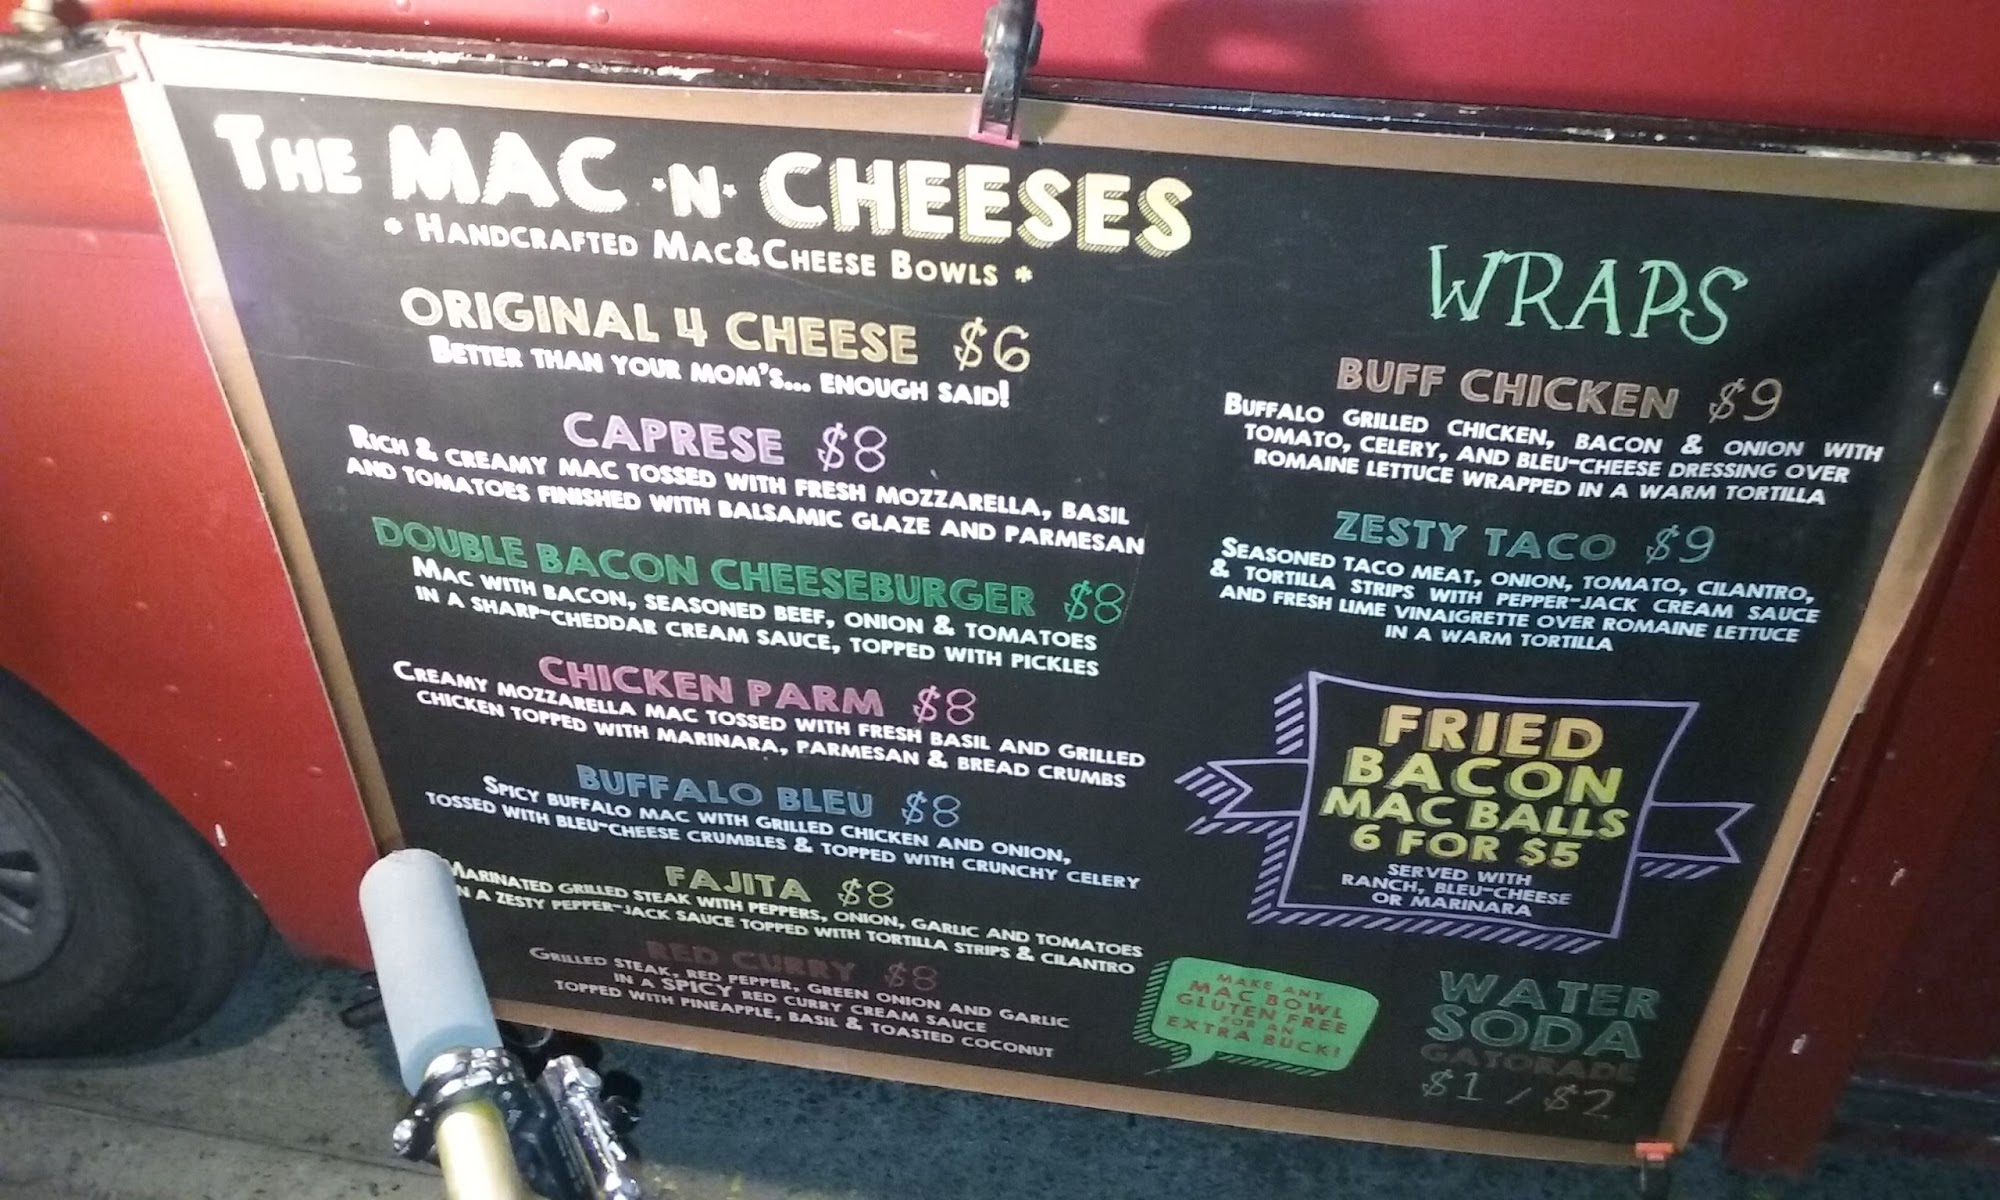 THE MAC ·N· CHEESES
* HANDCRAFTED MAC&CHEESE BOWLS *
ORIGINAL 4 CHEESE $6
BETTER THAN YOUR MOM'S... ENOUGH SAID!
CAPRESE $8
RICH & CREAMY MAC TOSSED WITH FRESH MOZZARELLA, BASIL
AND TOMATOES FINISHED WITH BALSAMIC GLAZE AND PARMESAN
DOUBLE BACON CHEESEBURGER $8
MAC WITH BACON, SEASONED BEEF, ONION & TOMATOES
IN A SHARP-CHEDDAR CREAM SAUCE, TOPPED WITH PICKLES
CHICKEN PARM $8
CREAMY MOZZARELLA MAC TOSSED WITH FRESH BASIL AND GRILLED
CHICKEN TOPPED WITH MARINARA, PARMESAN & BREAD CRUMBS
BUFFALO BLEU $8
SPICY BUFFALO MAC WITH GRILLED CHICKEN AND ONION,
TOSSED WITH BLEU-CHEESE CRUMBLES & TOPPED WITH CRUNCHY CELERY
FAJITA $8
MARINATED GRILLED STEAK WITH PEPPERS, ONION, GARLIC AND TOMATOES
IN A ZESTY PEPPER-JACK SAUCE TOPPED WITH TORTILLA STRIPS & CILANTRO
RED CURRY $8
GRILLED STEAK, RED PEPPER, GREEN ONION AND GARLIC
IN A SPICY RED CURRY CREAM SAUCE
TOPPED WITH PINEAPPLE, BASIL & TOASTED COCONUT
WRAPS
BUFF CHICKEN $9
BUFFALO GRILLED CHICKEN, BACON & ONION WITH
TOMATO, CELERY, AND BLEU-CHEESE DRESSING OVER
ROMAINE LETTUCE WRAPPED IN A WARM TORTILLA
ZESTY TACO $9
SEASONED TACO MEAT, ONION, TOMATO, CILANTRO,
& TORTILLA STRIPS WITH PEPPER-JACK CREAM SAUCE
AND FRESH LIME VINAIGRETTE OVER ROMAINE LETTUCE
IN A WARM TORTILLA
FRIED
BACON
MAC BALLS
6 FOR $5
SERVED WITH
RANCH, BLEU-CHEESE
OR MARINARA
MAKE ANY
MAC BOWL
GLUTEN FREE
FOR AN
EXTRA BUCK!
WATER
SODA
GATORADE
$1 / $2